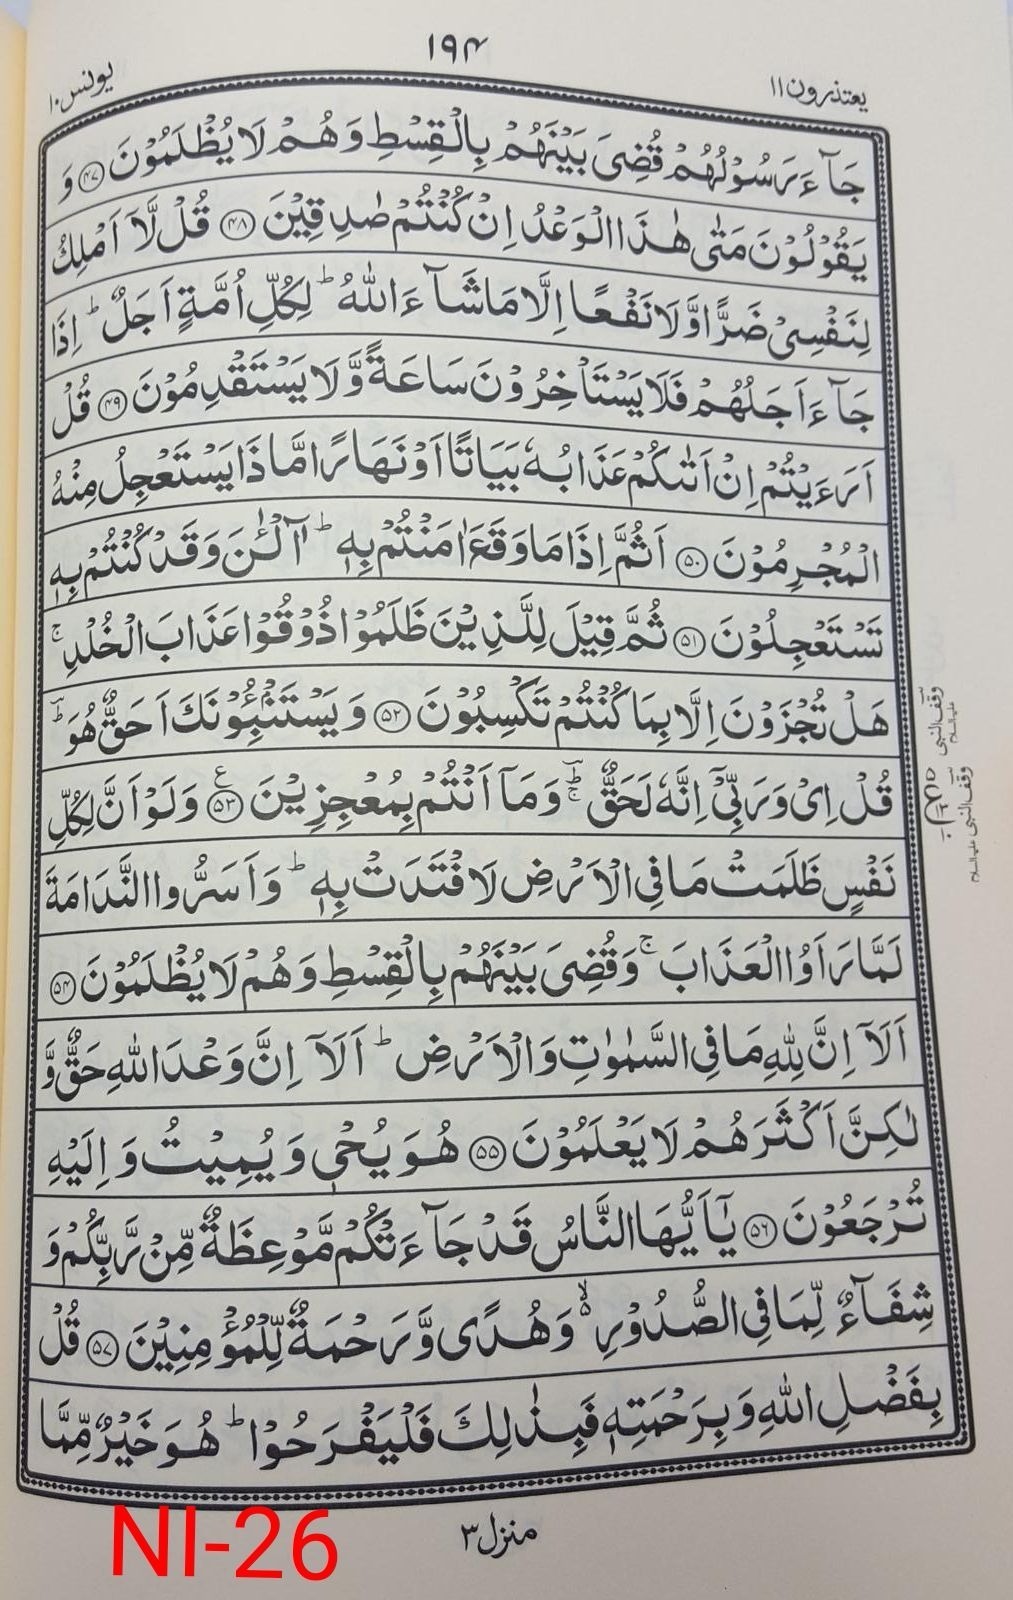 ۱۹۴
یعتذرون ۱۱
یونس ۱۰
جَآءَ رَسُوْلُهُمْ قُضِیَ بَیْنَهُمْ بِالْقِسْطِ وَ هُمْ لَا یُظْلَمُوْنَ ﴿۴۷﴾ وَ
یَقُوْلُوْنَ مَتٰی هٰذَا الْوَعْدُ اِنْ كُنْتُمْ صٰدِقِیْنَ ﴿۴۸﴾ قُلْ لَّاۤ اَمْلِكُ
لِنَفْسِیْ ضَرًّا وَّ لَا نَفْعًا اِلَّا مَا شَآءَ اللّٰهُ ؕ لِكُلِّ اُمَّةٍ اَجَلٌ ؕ اِذَا
جَآءَ اَجَلُهُمْ فَلَا یَسْتَاْخِرُوْنَ سَاعَةً وَّ لَا یَسْتَقْدِمُوْنَ ﴿۴۹﴾ قُلْ
اَرَءَیْتُمْ اِنْ اَتٰىكُمْ عَذَابُهٗ بَیَاتًا اَوْ نَهَارًا مَّا ذَا یَسْتَعْجِلُ مِنْهُ
الْمُجْرِمُوْنَ ﴿۵۰﴾ اَثُمَّ اِذَا مَا وَقَعَ اٰمَنْتُمْ بِهٖ ؕ آٰلْـٰٔنَ وَ قَدْ كُنْتُمْ بِهٖ
تَسْتَعْجِلُوْنَ ﴿۵۱﴾ ثُمَّ قِیْلَ لِلَّذِیْنَ ظَلَمُوْا ذُوْقُوْا عَذَابَ الْخُلْدِ ۚ
هَلْ تُجْزَوْنَ اِلَّا بِمَا كُنْتُمْ تَكْسِبُوْنَ ﴿۵۲﴾ وَ یَسْتَنْۢبِـُٔوْنَكَ اَحَقٌّ هُوَ ؔؕ
قُلْ اِیْ وَ رَبِّیْۤ اِنَّهٗ لَحَقٌّ ؔۚؕ وَ مَاۤ اَنْتُمْ بِمُعْجِزِیْنَ ﴿۵۳﴾ ع وَ لَوْ اَنَّ لِكُلِّ
نَفْسٍ ظَلَمَتْ مَا فِی الْاَرْضِ لَافْتَدَتْ بِهٖ ؕ وَ اَسَرُّوا النَّدَامَةَ
لَمَّا رَاَوُا الْعَذَابَ ۚ وَ قُضِیَ بَیْنَهُمْ بِالْقِسْطِ وَ هُمْ لَا یُظْلَمُوْنَ ﴿۵۴﴾
اَلَاۤ اِنَّ لِلّٰهِ مَا فِی السَّمٰوٰتِ وَ الْاَرْضِ ؕ اَلَاۤ اِنَّ وَعْدَ اللّٰهِ حَقٌّ وَّ
لٰكِنَّ اَكْثَرَهُمْ لَا یَعْلَمُوْنَ ﴿۵۵﴾ هُوَ یُحْیٖ وَ یُمِیْتُ وَ اِلَیْهِ
تُرْجَعُوْنَ ﴿۵۶﴾ یٰۤاَیُّهَا النَّاسُ قَدْ جَآءَتْكُمْ مَّوْعِظَةٌ مِّنْ رَّبِّكُمْ وَ
شِفَآءٌ لِّمَا فِی الصُّدُوْرِ ۙ۬ وَ هُدًی وَّ رَحْمَةٌ لِّلْمُؤْمِنِیْنَ ﴿۵۷﴾ قُلْ
بِفَضْلِ اللّٰهِ وَ بِرَحْمَتِهٖ فَبِذٰلِكَ فَلْیَفْرَحُوْا ؕ هُوَ خَیْرٌ مِّمَّا
وقف النبی علیہ السلام
وقف النبی علیہ السلام
منزل ۳
NI-26